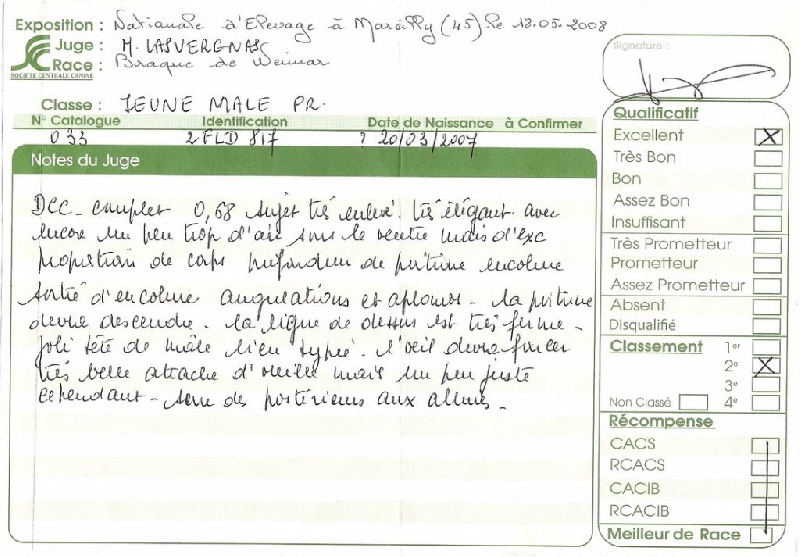 Exposition : Nationale d'Elevage à Marcilly (45) le 18.05.2008
Juge : M. LASVERGNAS
Race : Braque de Weimar
SOCIÉTÉ CENTRALE CANINE
Classe : JEUNE MALE PR.
N° Catalogue Identification Date de Naissance à Confirmer
033 2 FLD 817 ? 20/03/2007
Notes du Juge
DCC - complet 0,68 sujet très enlevé. très élégant avec
encore un peu trop d'air sous le ventre mais d'exc
proportion de corps profondeur de poitrine encolure
sortie d'encolure angulations et aplombs - la poitrine
devra descendre - la ligne de dessus est très ferme -
joli tête de mâle bien typée. l'oeil devra foncer
très belle attache d'oreille mais un peu juste
cependant - serre des postérieurs aux allures -
Signature :
Qualificatif
Excellent X
Très Bon
Bon
Assez Bon
Insuffisant
Très Prometteur
Prometteur
Assez Prometteur
Absent
Disqualifié
Classement 1er
2e X
3e
Non Classé 4e
Récompense
CACS
RCACS
CACIB
RCACIB
Meilleur de Race